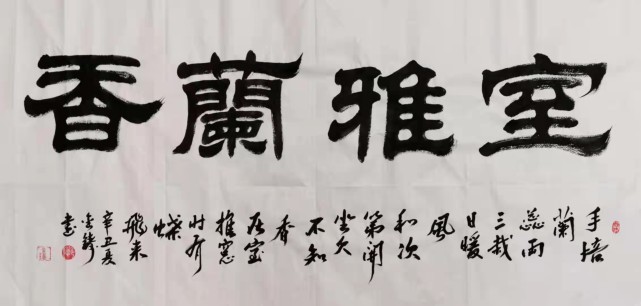 室雅蘭香
手培
蘭
蕊兩
三栽
日暖
風
和次
第開
坐久
不知
香
在室
推窓
时有
蝶
飛来
辛丑夏
书